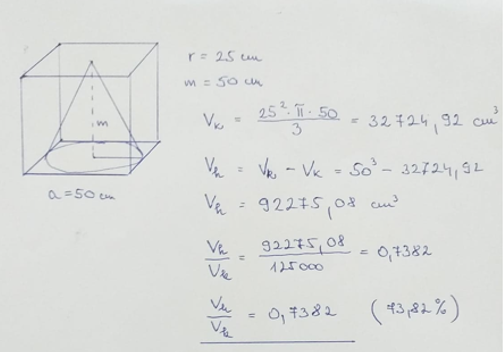 r = 25 cm
m = 50 cm
m
a = 50 cm
Vk = 25² · π · 50 / 3 = 32724,92 cm³
Vh = Vk − Vk = 50³ − 32724,92
Vh = 92275,08 cm³
Vh / Vk = 92275,08 / 125000 = 0,7382
Vh / Vk = 0,7382 (73,82%)